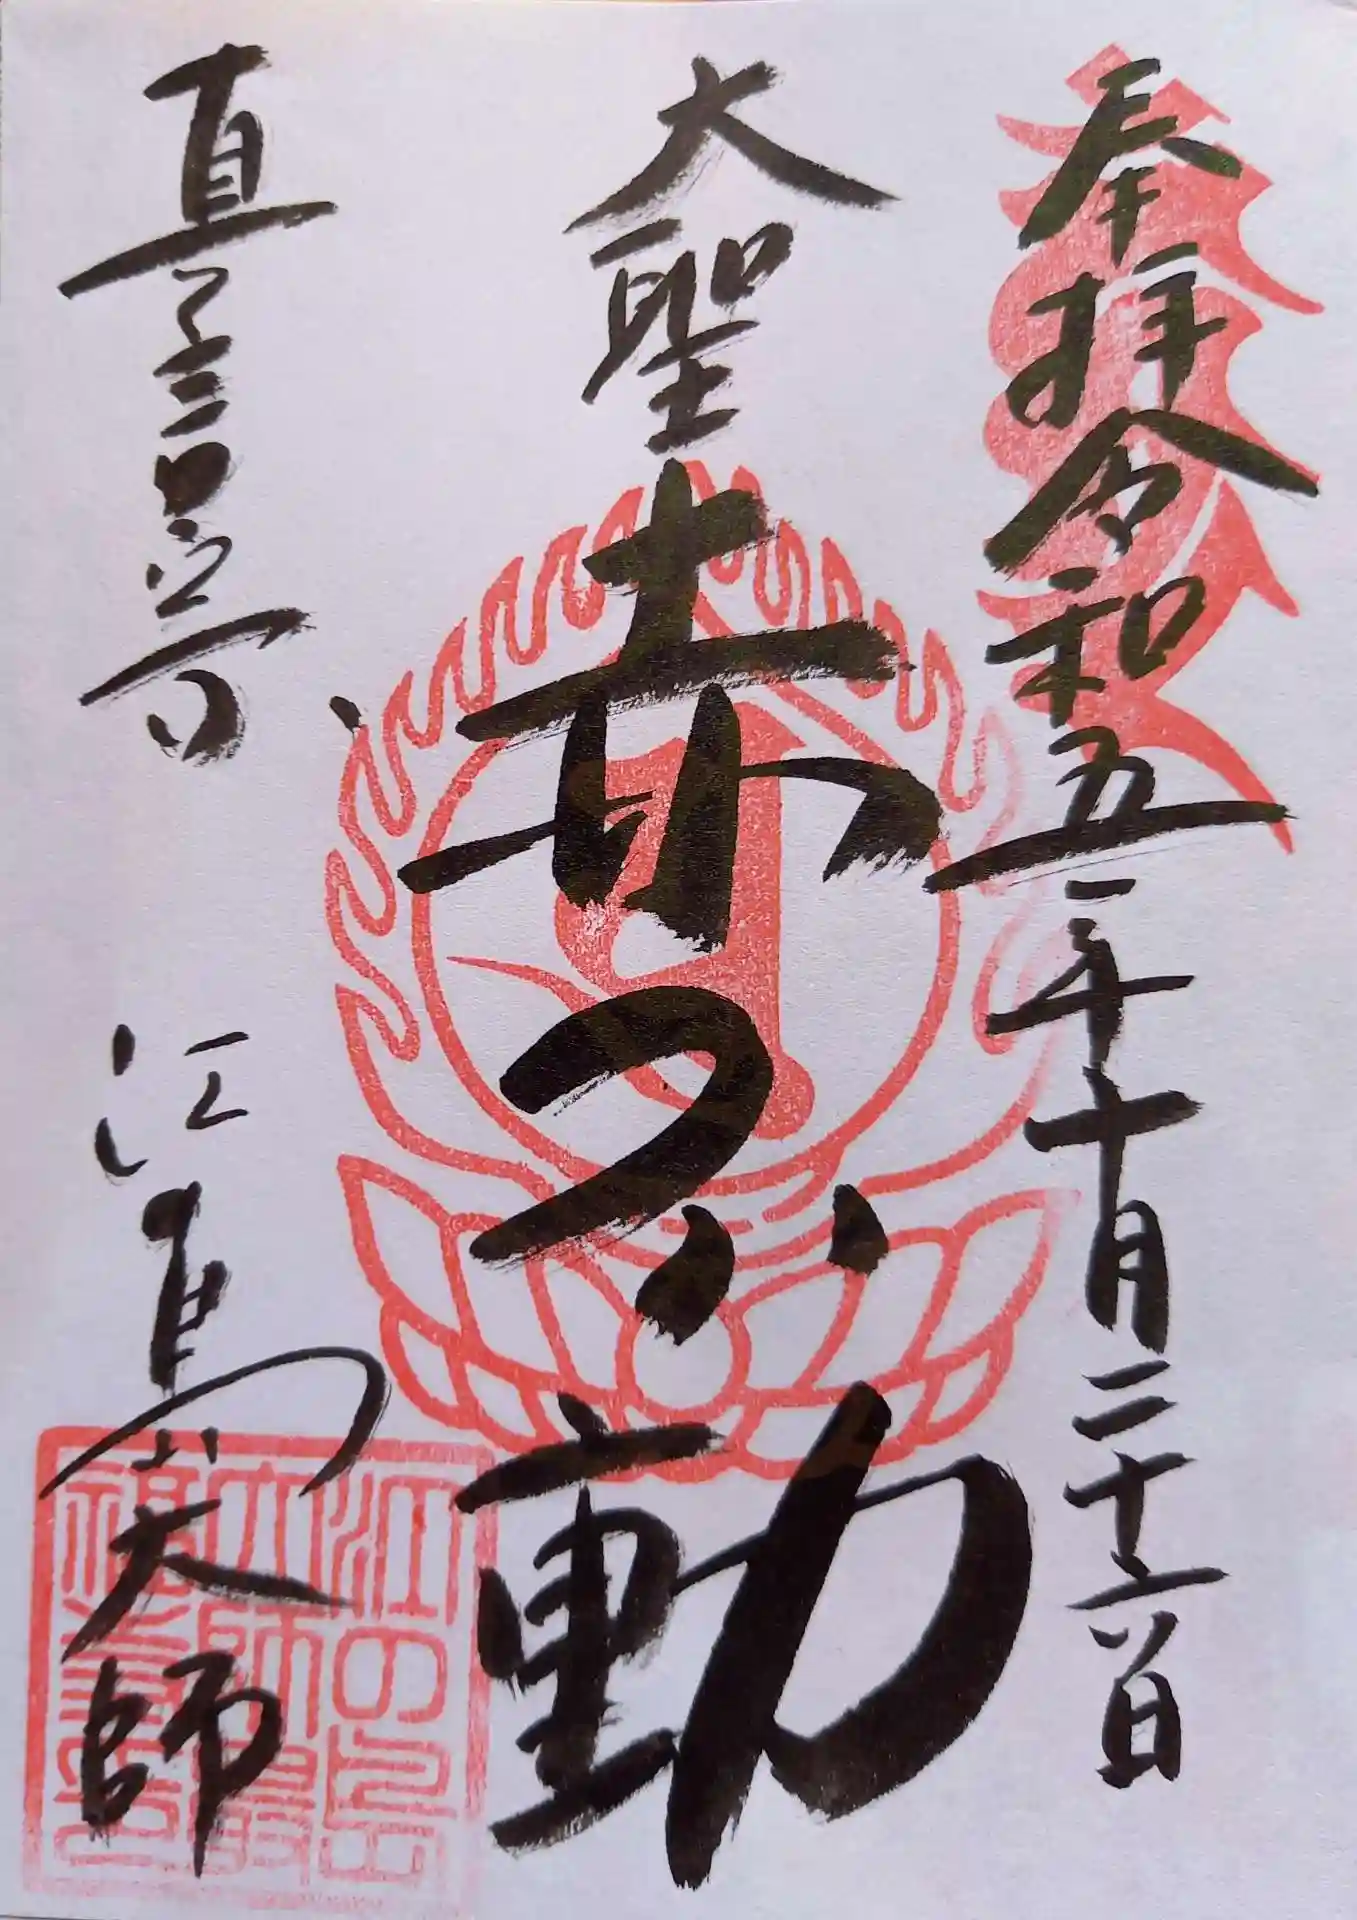 奉拝 令和五年十月二十六日
大聖
赤不動
真言宗 江島大師
江の島
大師最